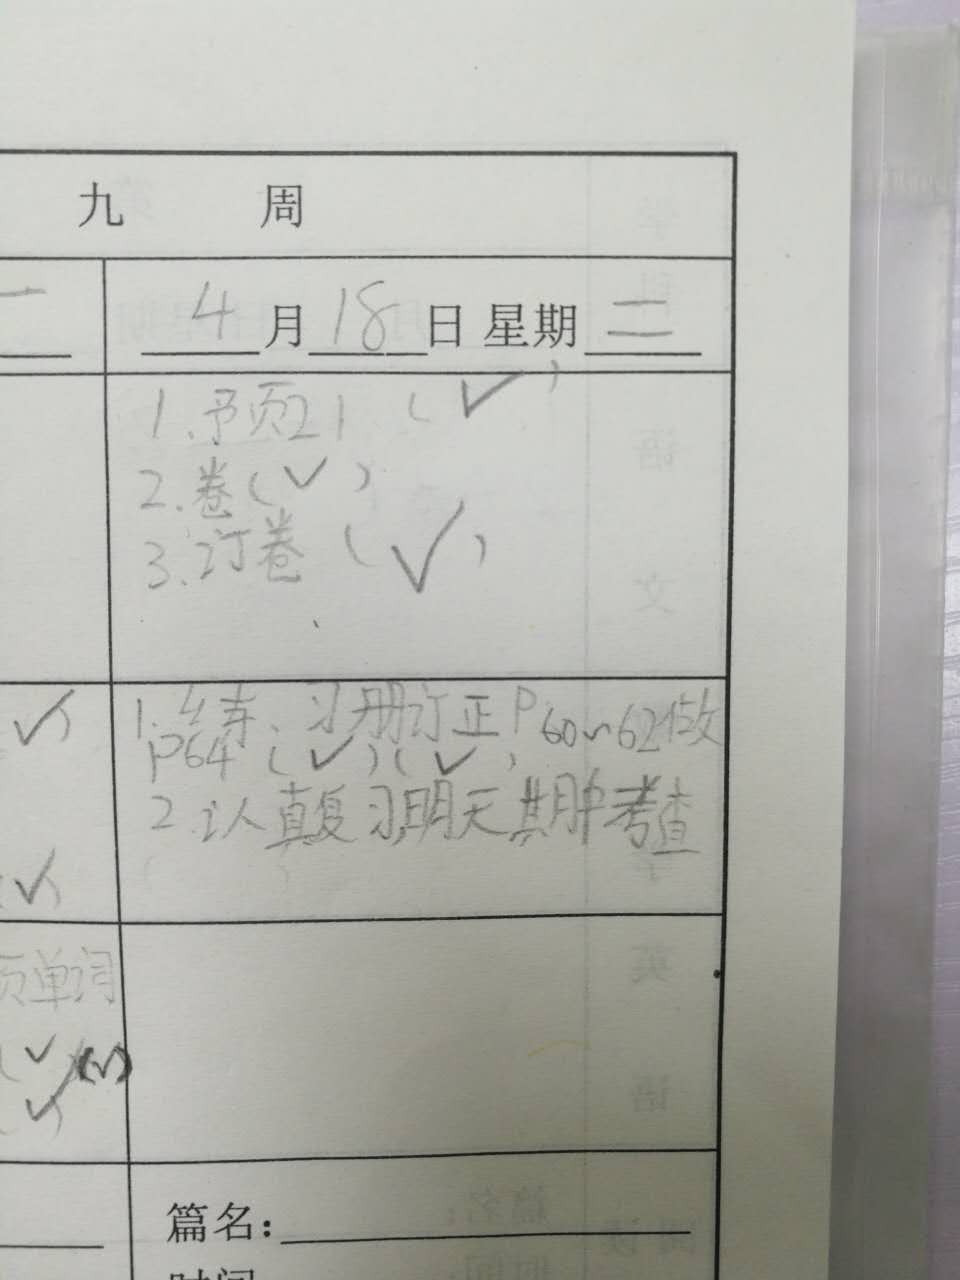 九 周
4月18日 星期三
1.予页21 (✓)
2.卷(✓)
3.订卷 (✓)
1.练、习册订正P60~62 做
P64 (✓)(✓)
2.认真复习明天期中考查
页单词
篇名:
时间